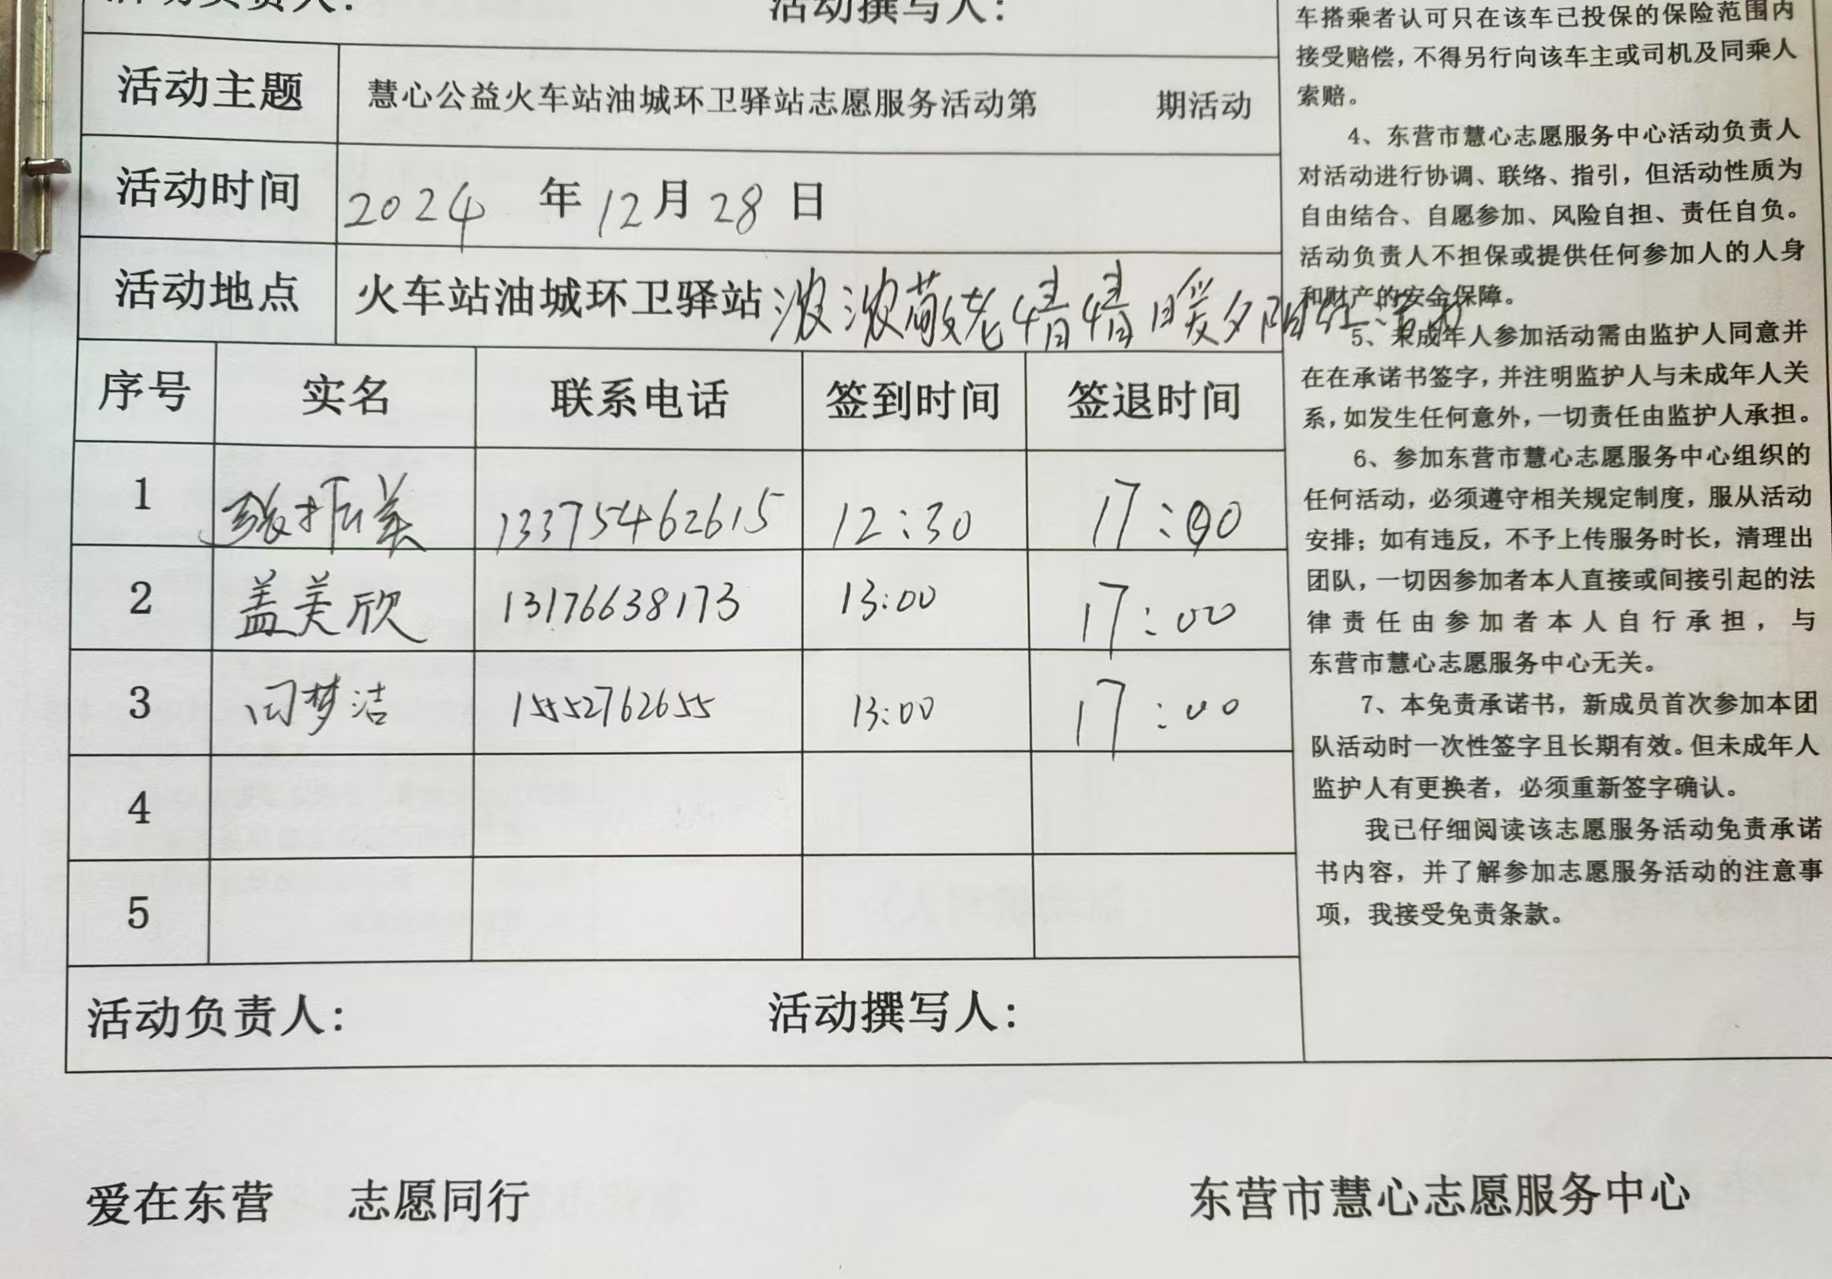 活动负责人： 活动撰写人：
活动主题 慧心公益火车站油城环卫驿站志愿服务活动第 期活动
活动时间 2024 年 12月 28 日
活动地点 火车站油城环卫驿站 浓浓敬老情情暖夕阳红活动
序号 实名 联系电话 签到时间 签退时间
1 张振美 13375462615 12:30 17:00
2 盖美欣 13176638173 13:00 17:00
3 闫梦洁 15552762655 13:00 17:00
4
5
活动负责人： 活动撰写人：
车搭乘者认可只在该车已投保的保险范围内
接受赔偿，不得另行向该车主或司机及同乘人
索赔。
4、东营市慧心志愿服务中心活动负责人
对活动进行协调、联络、指引，但活动性质为
自由结合、自愿参加、风险自担、责任自负。
活动负责人不担保或提供任何参加人的人身
和财产的安全保障。
5、未成年人参加活动需由监护人同意并
在在承诺书签字，并注明监护人与未成年人关
系，如发生任何意外，一切责任由监护人承担。
6、参加东营市慧心志愿服务中心组织的
任何活动，必须遵守相关规定制度，服从活动
安排；如有违反，不予上传服务时长，清理出
团队，一切因参加者本人直接或间接引起的法
律责任由参加者本人自行承担，与
东营市慧心志愿服务中心无关。
7、本免责承诺书，新成员首次参加本团
队活动时一次性签字且长期有效。但未成年人
监护人有更换者，必须重新签字确认。
我已仔细阅读该志愿服务活动免责承诺
书内容，并了解参加志愿服务活动的注意事
项，我接受免责条款。
爱在东营 志愿同行 东营市慧心志愿服务中心